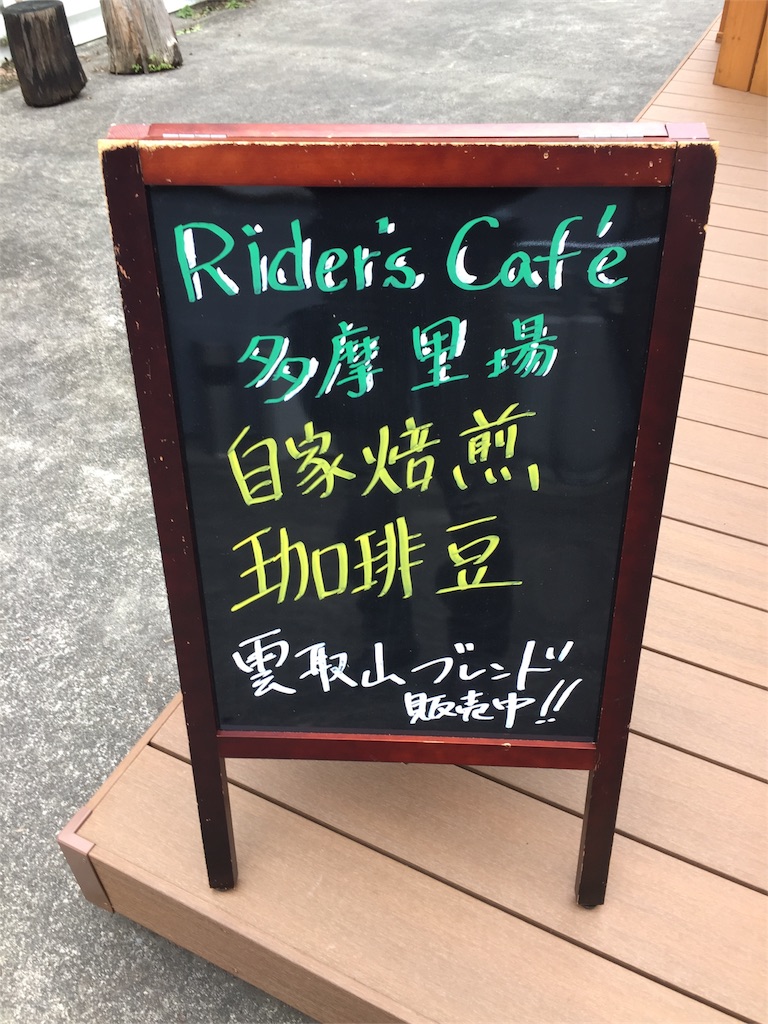 Rider's Café
多摩里場
自家焙煎
珈琲豆
雲取山ブレンド
販売中!!